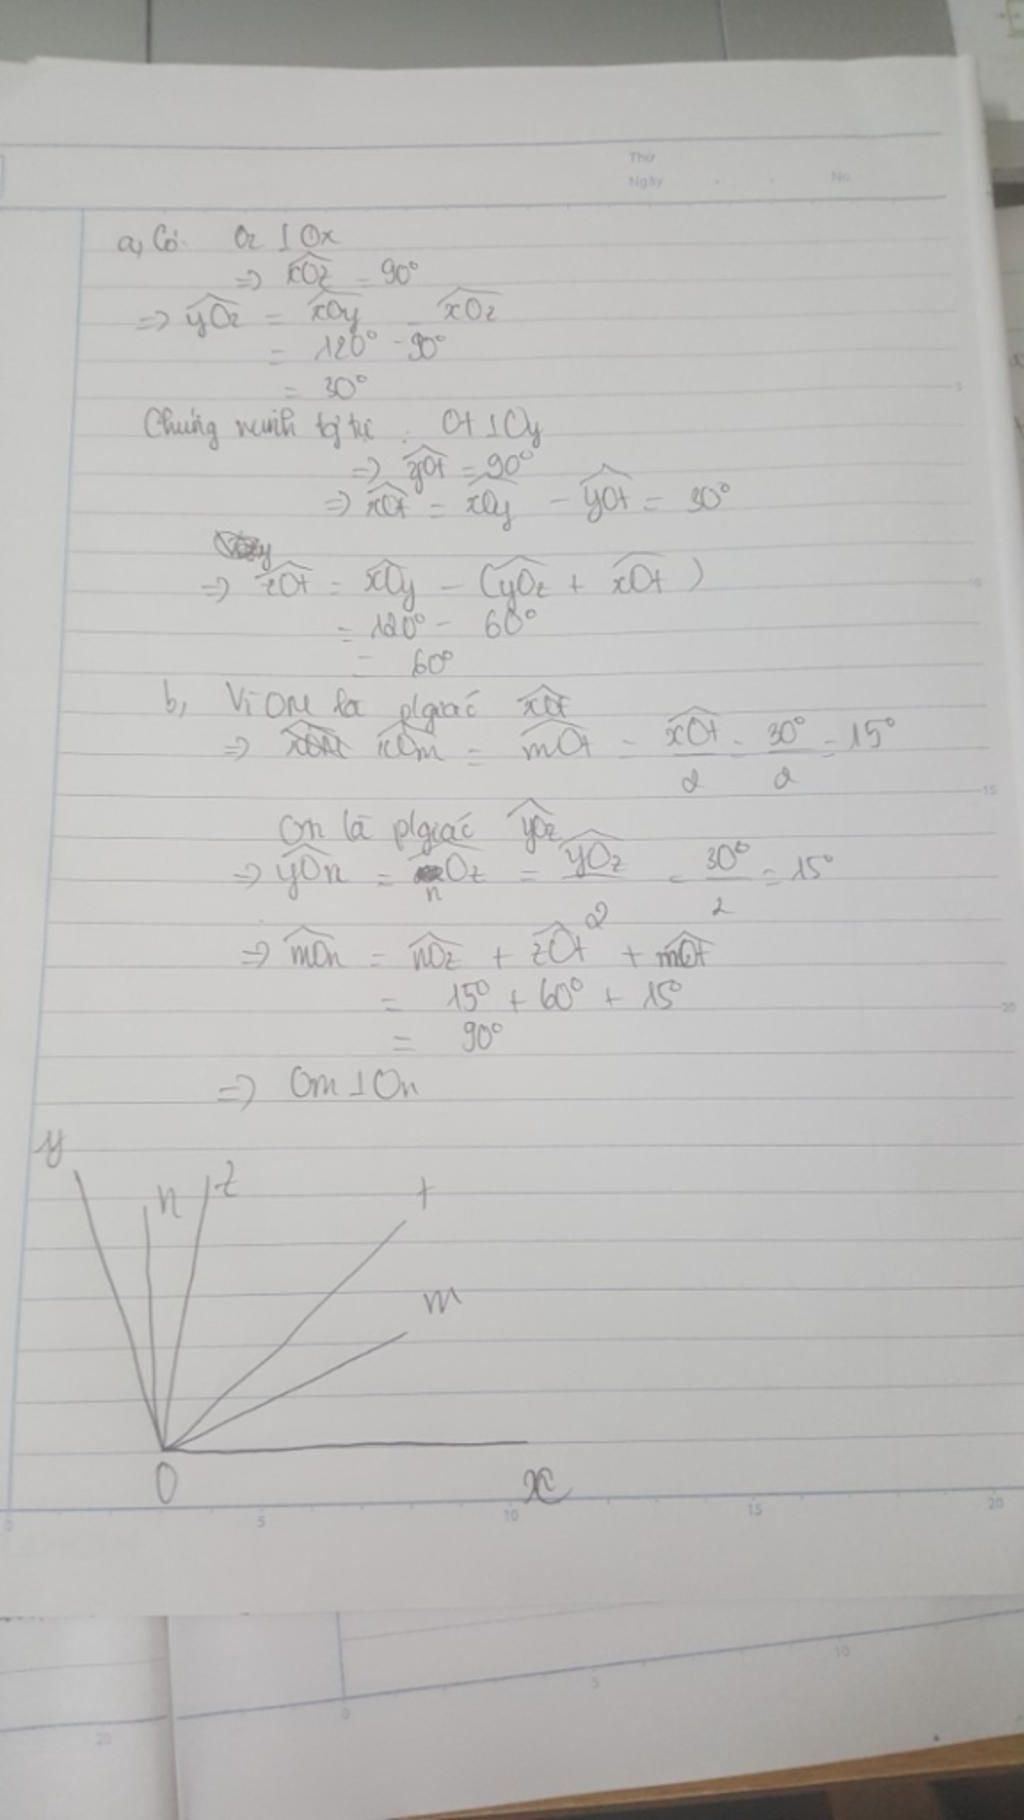 Thứ
Ngày . . No.
a, Có. Oz ⊥ Ox
=> xOz = 90°
=> yOz = xOy - xOz
= 120° - 90°
= 30°
Chứng minh tg tự : Ot ⊥ Oy
=> yOt = 90°
=> xOt = xOy - yOt = 30°
=> zOt = xOy - (yOz + xOt)
= 120° - 60°
= 60°
b, Vì Om là plgiác xOt
=> xOm = mOt = xOt/2 = 30°/2 = 15°
On là plgiác yOz
=> yOn = nOz = yOz/2 = 30°/2 = 15°
=> mOn = nOz + zOt + mOt
= 15° + 60° + 15°
= 90°
=> Om ⊥ On
y n z t
m
O x
0 5 10 15 20
5
10
15
20
0 5 10
20